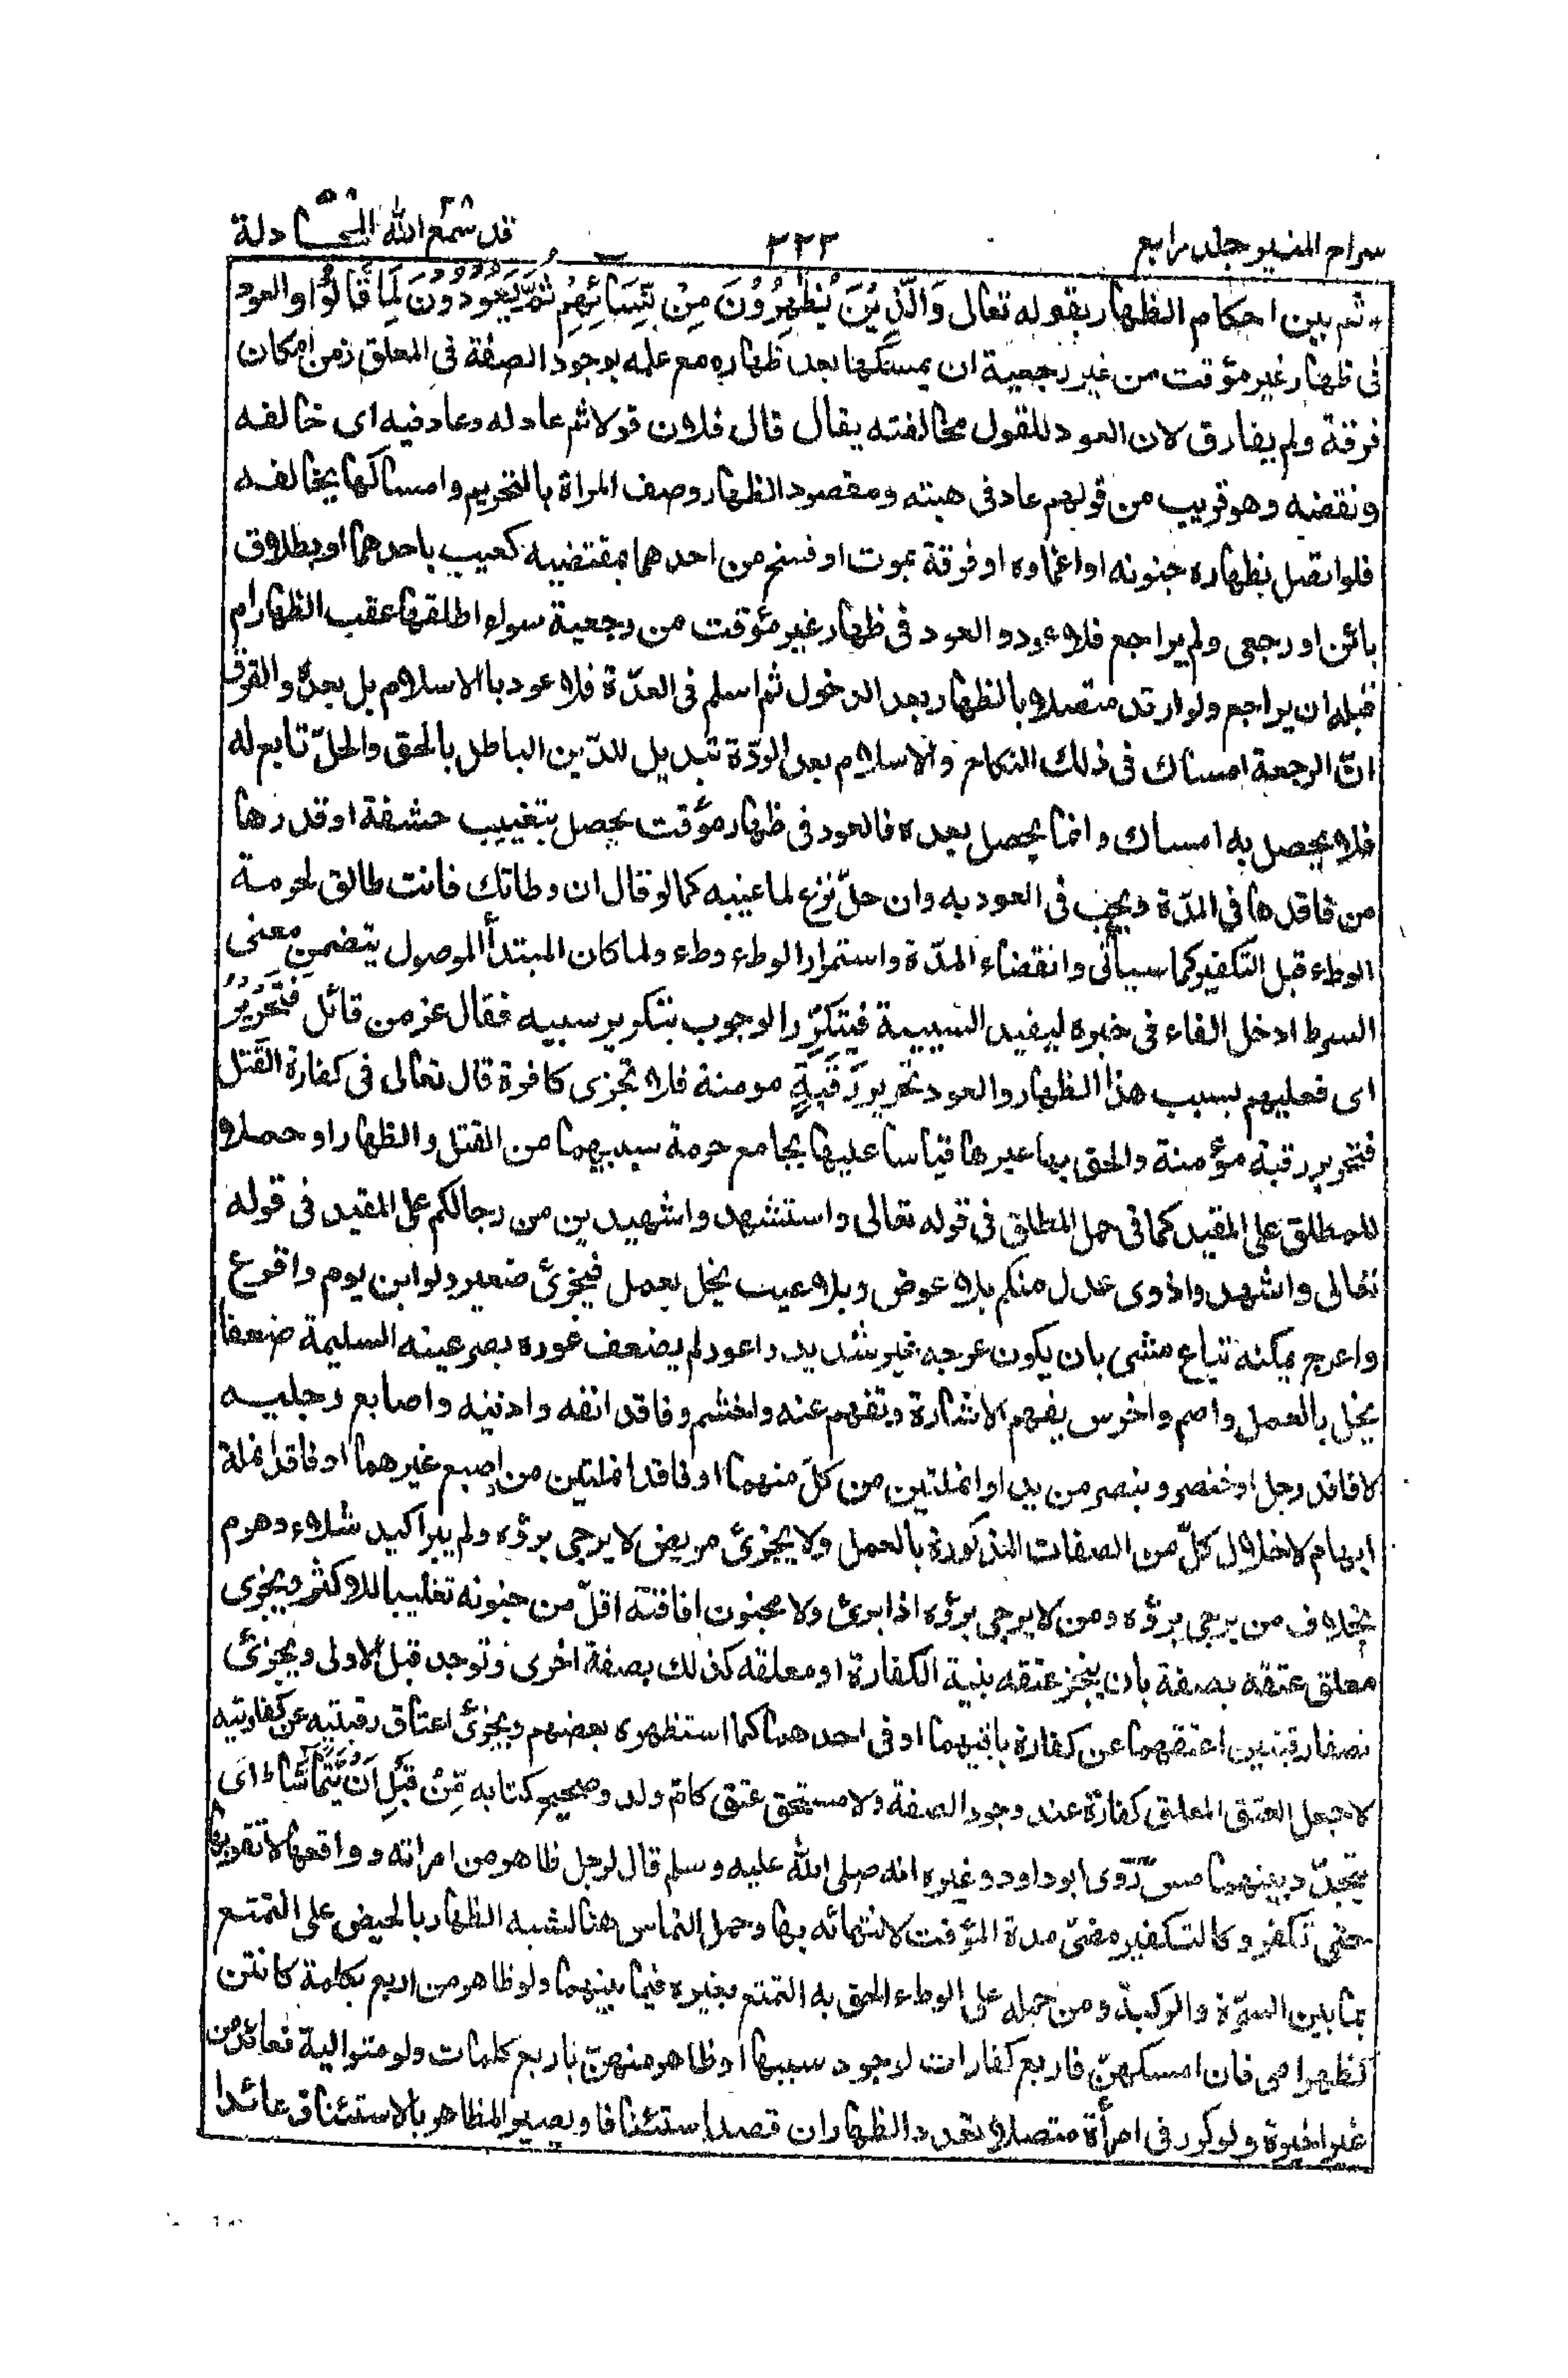 سراج المنير جلد رابع ٣٢٣ قد سمع الله ٢٨ المجادلة ٥٨
ثم بين احكام الظهار بقوله تعالى وَالَّذِيْنَ يُظٰهِرُوْنَ مِنْ نِّسَائِهِمْ ثُمَّ يَعُوْدُوْنَ لِمَا قَالُوْا والعود
فى ظهار غير مؤقت من غير رجعية ان يمسكها بعد ظهاره مع علمه بوجود الصفة فى المعلق زمن امكان
فرقة ولم يفارق لان العود للقول مخالفته يقال قال فلان قولا ثم عاد له وعاد فيه اى خالفه
ونقضه وهو قريب من قولهم عاد فى هبته ومقصود الظهار وصف المراة بالتحريم وامساكها يخالفه
فلو اتصل بظهاره جنونه او اغماوه او فرقة بموت او فسخ من احدهما بمقتضيه كعيب باحدهما او بطلاق
بائن او رجعى ولم يراجع فلا عود والعود فى ظهار غير مؤقت من رجعية سواء اطلقها عقب الظهار ام
قبله ان يراجع ولو ارتد متصلا بالظهار بعد الدخول ثم اسلم فى العدّة فلا عود باالاسلام بل بعده والفرق
انّ الرجعة امساك فى ذلك النكاح والاسلام بعد الردّة تبديل للدّين الباطل بالحق والحلّ تابع له
فلا يحصل به امساك وانما يحصل بعده فالعود فى ظهار مؤقت يحصل بتغييب حشفة او قدرها
من فاقدها فى المدّة ويجب فى العود به وان حلّ نزع لما غيبه كما لو قال ان وطاتك فانت طالق لحرمة
الوطء قبل التكفير كما سياتى وانقضاء المدّة واستمرار الوطء وطء ولما كان المبتدأ الموصول يتضمن معنى
السرط ادخل الفاء فى خبره ليفيد السببية فيتكرّر الوجوب بتكرير سببه فقال عز من قائل فَتَحْرِيْرُ
اى فعليهم بسبب هذا الظهار والعود تحرير رَقَبَةٍ مومنة فلا تجزى كافرة قال تعالى فى كفارة القتل
فتحرير رقبة مؤمنة والحق بها غيرها قياسا عليها بجامع حرمة سببيهما من القتل والظهار او حملا
للمطلق على المقيد كما فى حمل المطلق فى قوله تعالى واستشهدوا شهيدين من رجالكم على المقيد فى قوله
تعالى واشهدوا ذوى عدل منكم بلا عوض وبلا عيب يخل بعمل فيجزئ صغير ولو ابن يوم واقرع
واعرج يمكنه تباع مشى بان يكون عرجه غير شديد واعور لم يضعف عوره بصر عينه السليمة ضعفا
يخل بالعمل واصم واخرس يفهم الاشارة وتفهم عنه واخشم وفاقد انفه واذنيه واصابع رجليه
لا فاقد رجل او خنصر وبنصر من يد او انملتين من كلّ منهما او فاقد انملتين من اصبع غيرهما او فاقد انملة
ابهام لاخلال كلّ من الصفات المذكورة بالعمل ولا يجزئ مريض لا يرجى برؤه ولم يبرا كيد شلاء وهرم
بخلاف من يرجى برؤه ومن لا يرجى برؤه اذا برئ ولا مجنون افاقته اقلّ من جنونه تغليبا للاكثر ويجزى
معلق عتقه بصفة بان ينجز عتقه بنية الكفارة او معلقه كذلك بصفة اخرى وتوجد قبل الاولى ويجزئ
نصفا رقبتين اعتقهما عن كفارة باقيهما او فى احدهما كما استظهره بعضهم ويجزئ اعتاق رقبتيه عن كفارتيه
لا جعل العتق المعلق كفارة عند وجود الصفة ولا مستحق عتق كام ولد وصحيح كتابه مِّنْ قَبْلِ اَنْ يَّتَمَاسَّا ط اى
يتجدّد بينهما مس روى ابو داود وغيره انه صلى الله عليه وسلم قال لرجل ظاهر من امراته وواقعها لا تقربها
حتى تكفر وكالتكفير مضىّ مدة المؤقت لانتهائه بها وحمل التماس هنا لشبه الظهار بالحيض على التمتع
بما بين السرّة والركبة ومن حمله على الوطء الحق به التمتع بغيره فيما بينهما ولو ظاهر من اربع بكلمة كانتن
كظهر امى فان امسكهنّ فاربع كفارات لوجود سببها او ظاهر منهنّ باربع كلمات ولو متوالية فعائد من
غير اخيرة ولو كرر فى امرأة متصلا تعدد الظهار ان قصد استئنافا ويصير المظاهر بالاستئناف عائدا